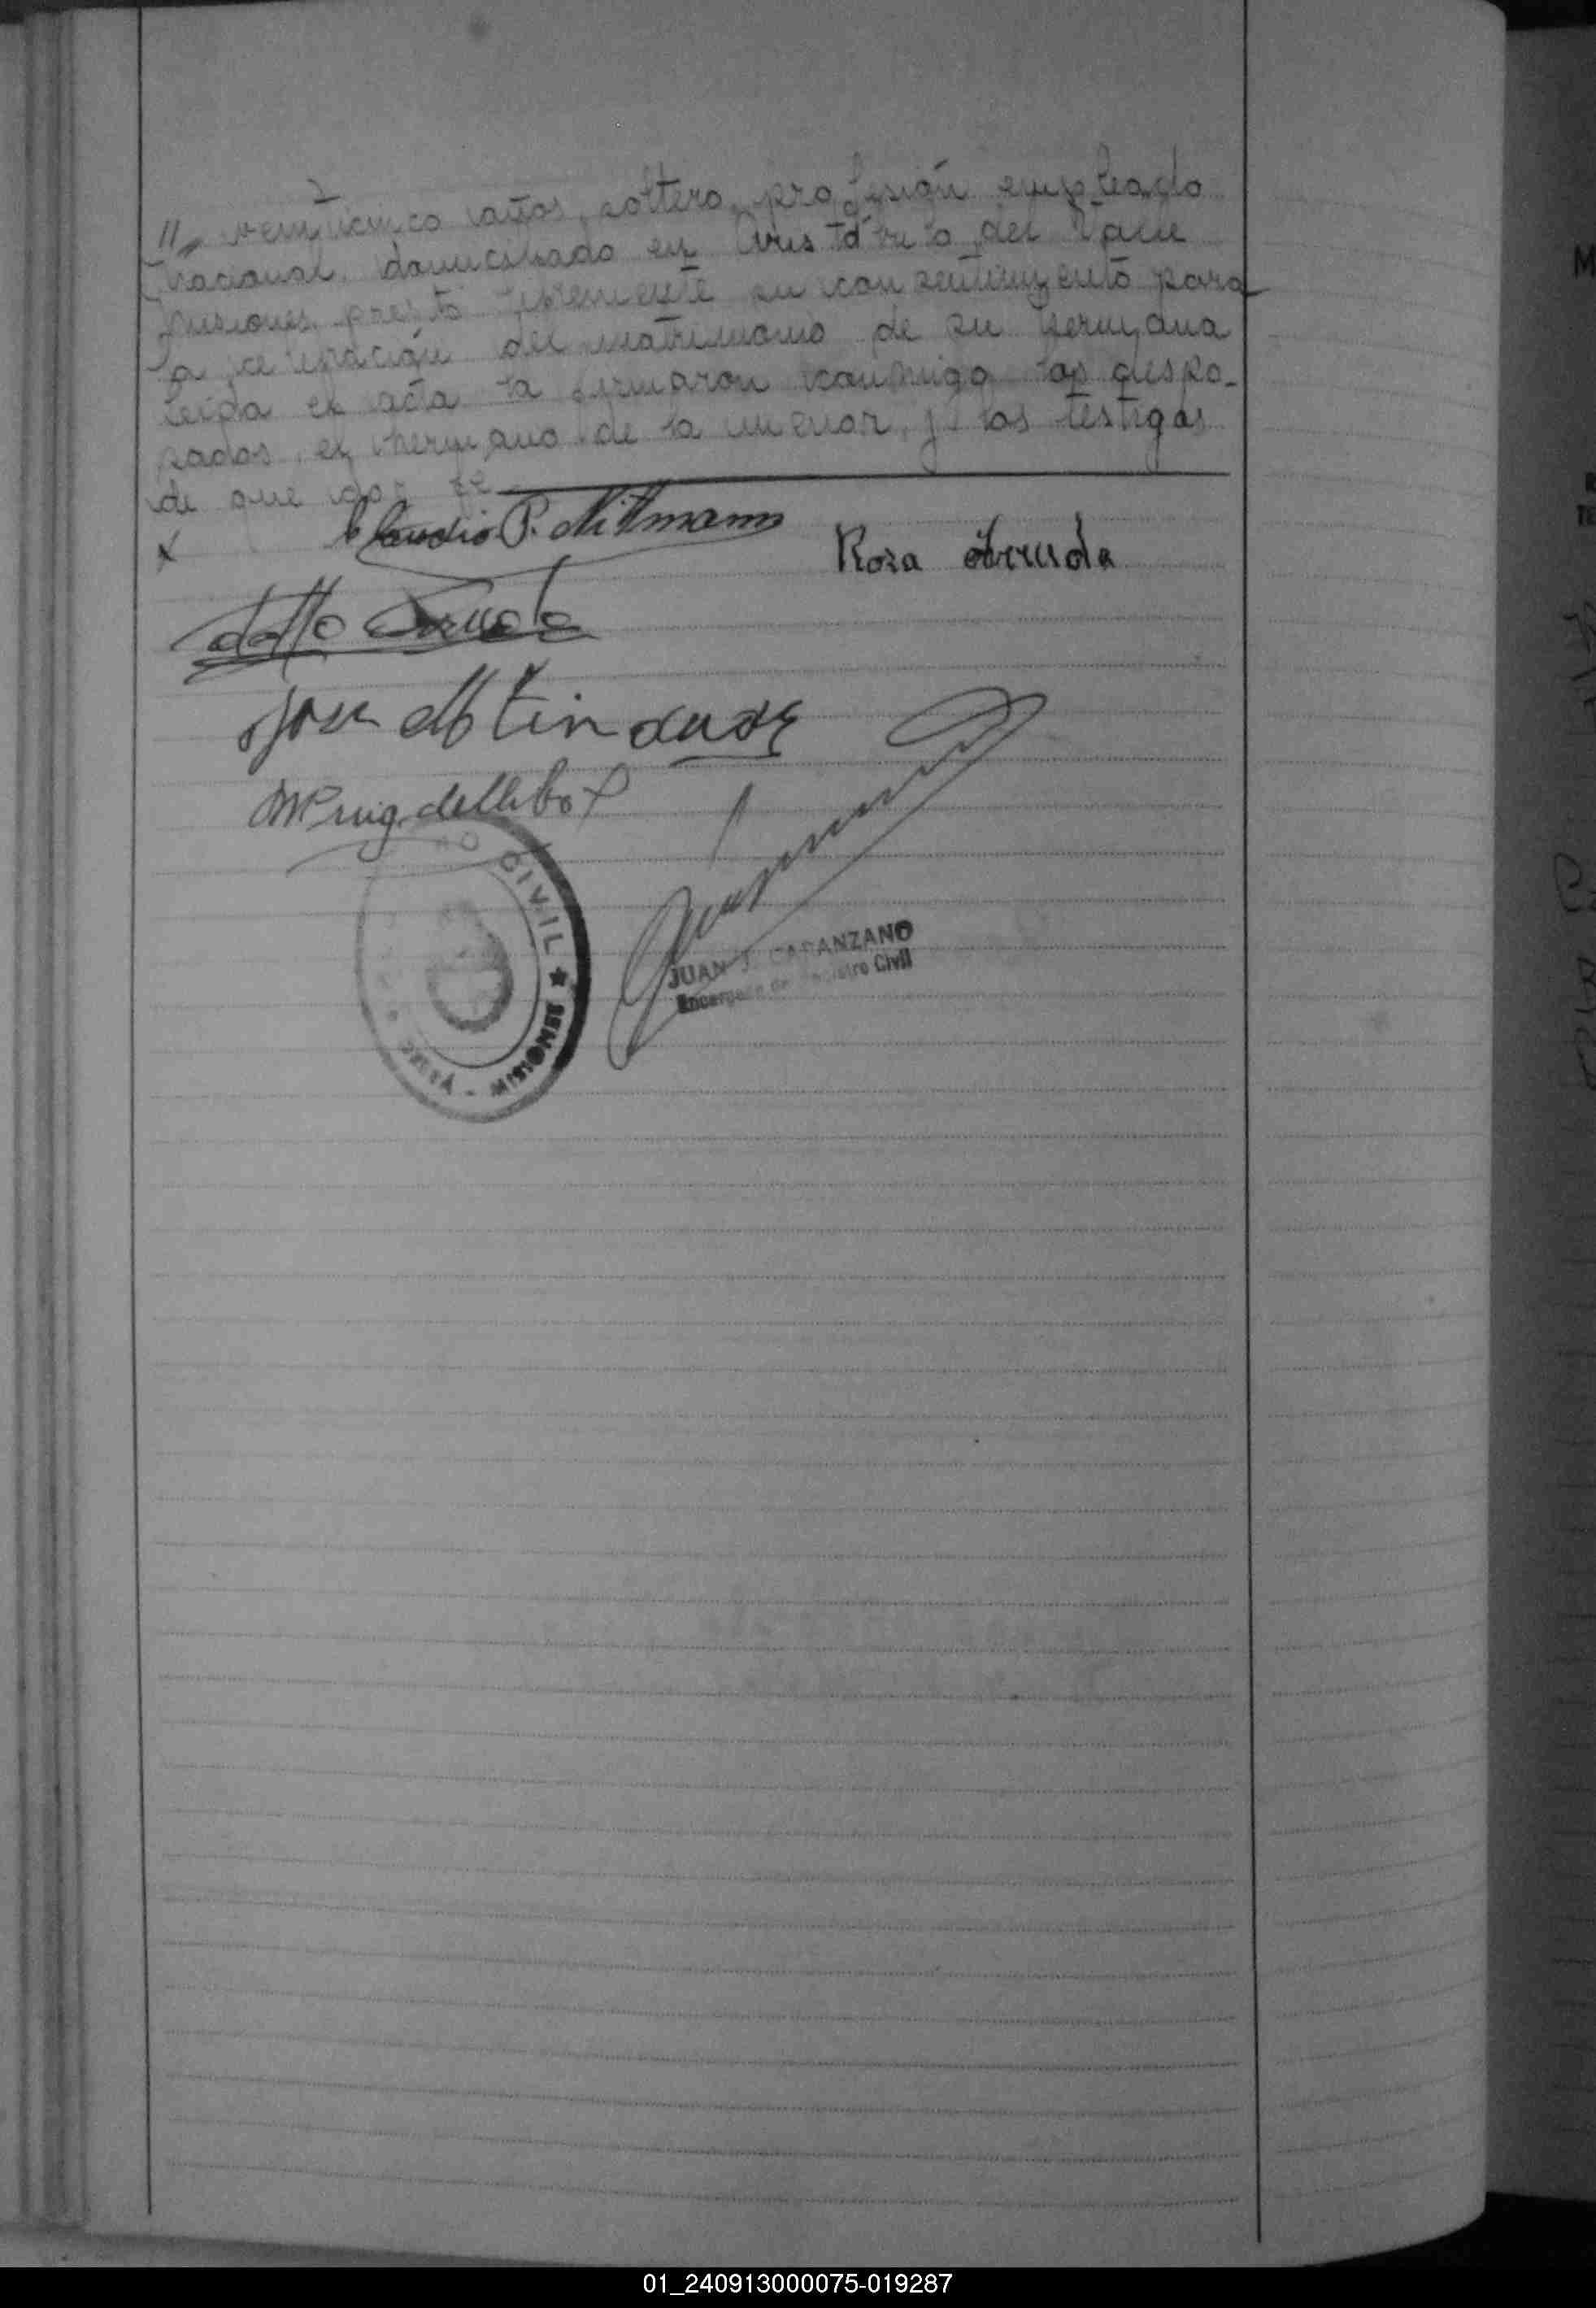 veinticinco años, soltero, profesión empleado
nacional, domiciliado en Aristóbulo del Valle
Misiones, prestó libremente su consentimiento para
la celebración del matrimonio de su hermana
Leída el acta la firmaron conmigo los despo-
sados, el hermano de la menor, y los testigos
de que doy fe
Claudio P. Nittmann
Rosa
Jose
CIVIL ★ MISIONES -
JUAN J. CAPANZANO
Encargado de Registro Civil
01_240913000075-019287